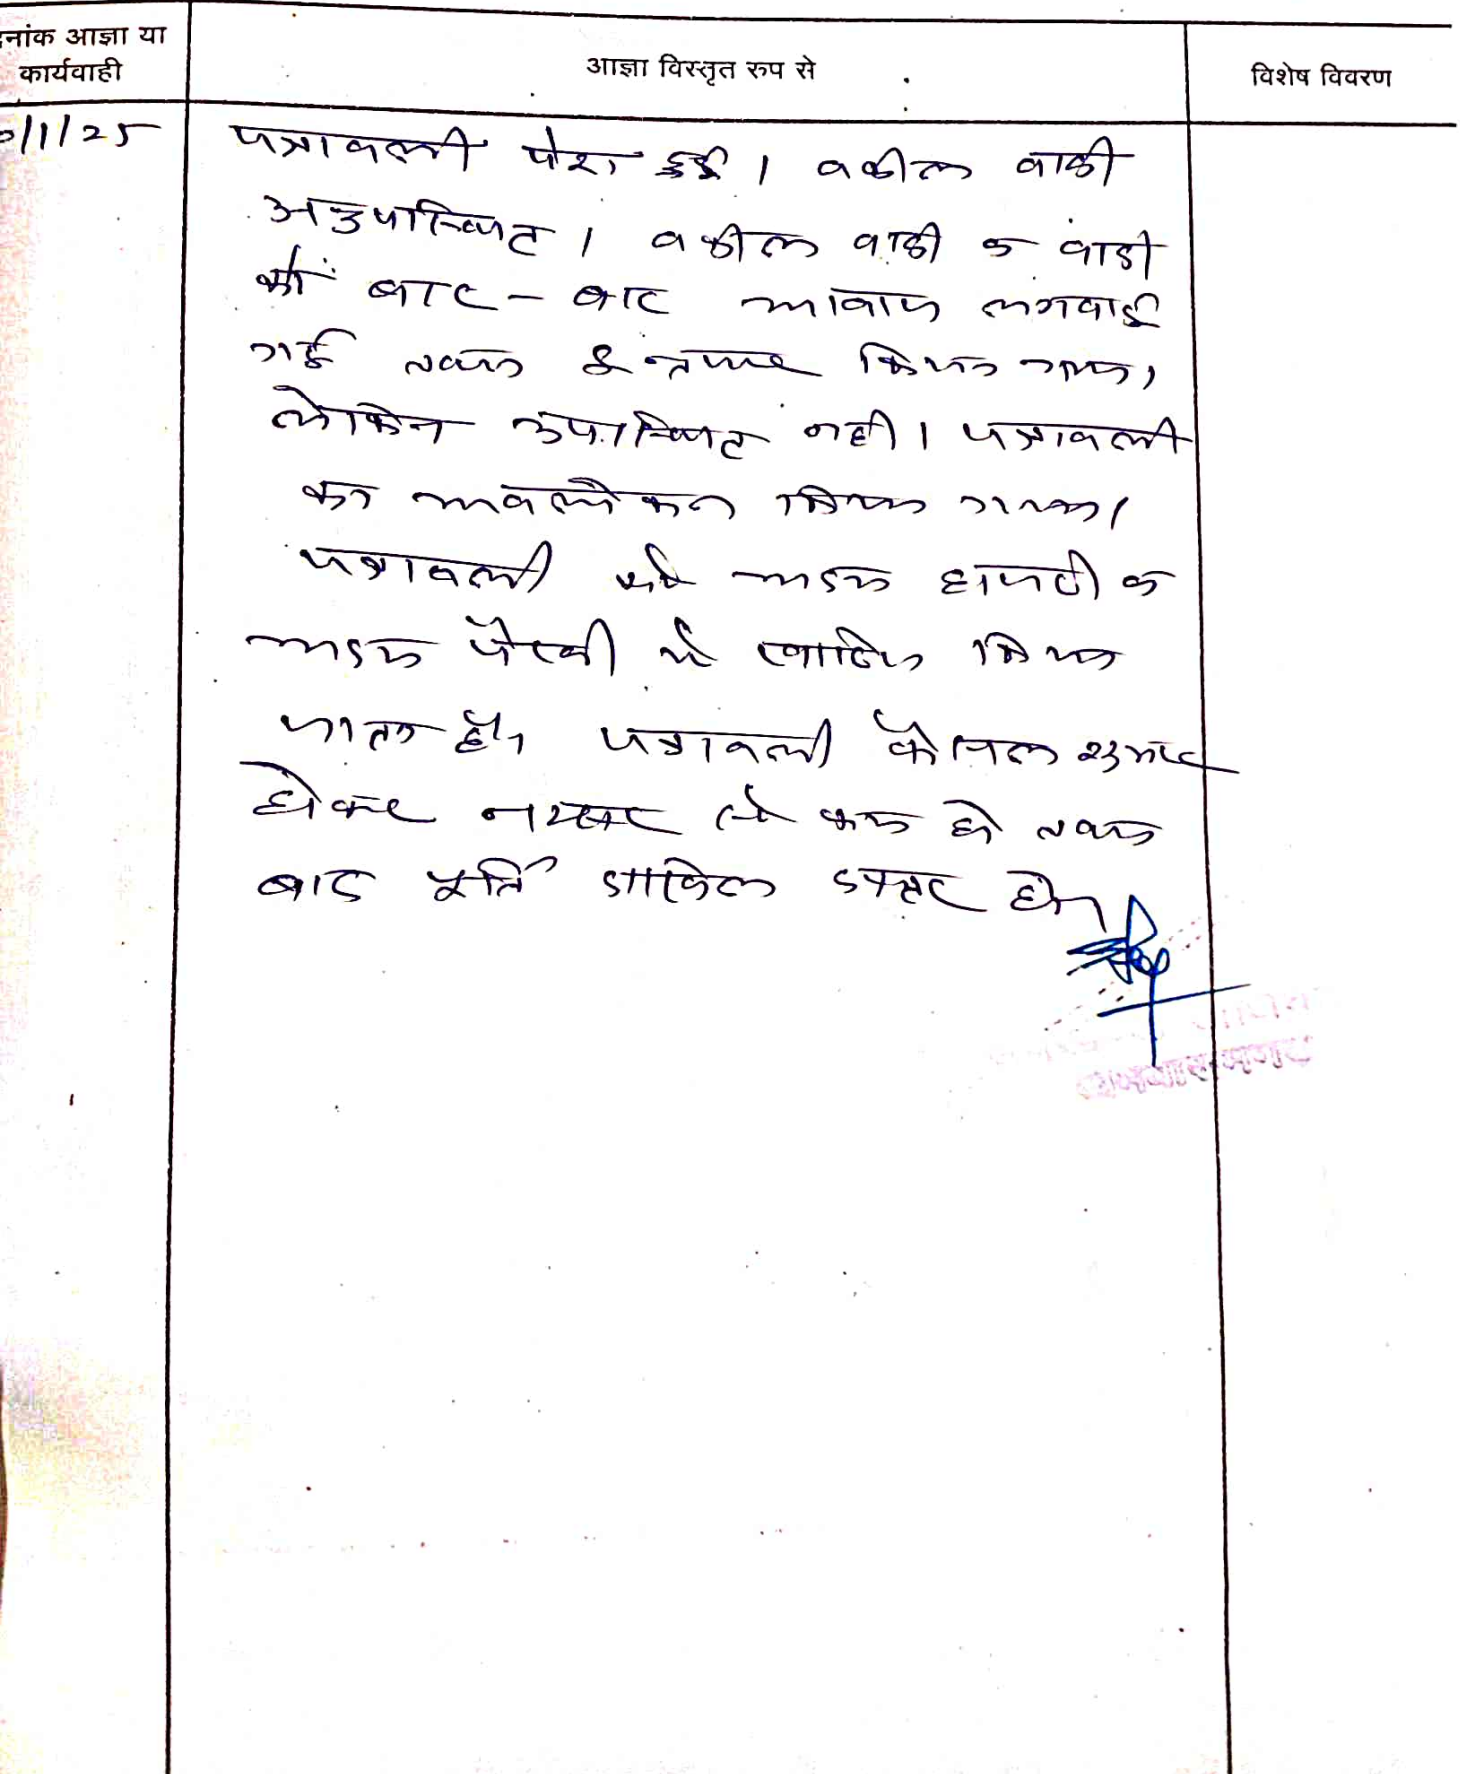 नांक आज्ञा या
कार्यवाही
आज्ञा विस्तृत रुप से
विशेष विवरण
/1/25
पत्रावली पेश हुई। वकील वादी
अनुपस्थित। वकील वादी व वादी
को बार-बार आवाज लगवाई
गई तथा इन्तजार किया गया।
लेकिन उपस्थित नही। पत्रावली
का अवलोकन किया गया।
पत्रावली को अदम हाजरी व
अदम पैरवी मे खारिज किया
जाता है। पत्रावली फैसल शुमार
होकर नम्बर से कम हो तथा
बाद पूर्ति दाखिल दफ्तर हो।